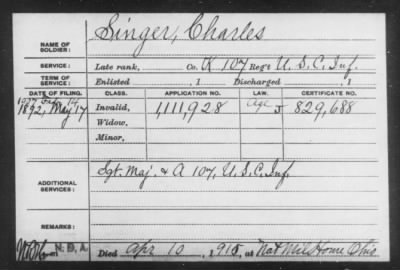 NAME OF SOLDIER: Singer, Charles
SERVICE: Late rank, Co. K 107 Reg't U. S. C. Inf.
TERM OF SERVICE: Enlisted , 1 Discharged , 1
DATE OF FILING. CLASS. APPLICATION NO. LAW. CERTIFICATE NO.
1892, May 17 Invalid, 1,111,928 829,688
Widow,
Minor,
ADDITIONAL SERVICES: Sgt. Maj. & A 107, U. S. C. Inf.
REMARKS:
N.D.A. Died Apr 10, 1915, at Nat Mil Home Ohio